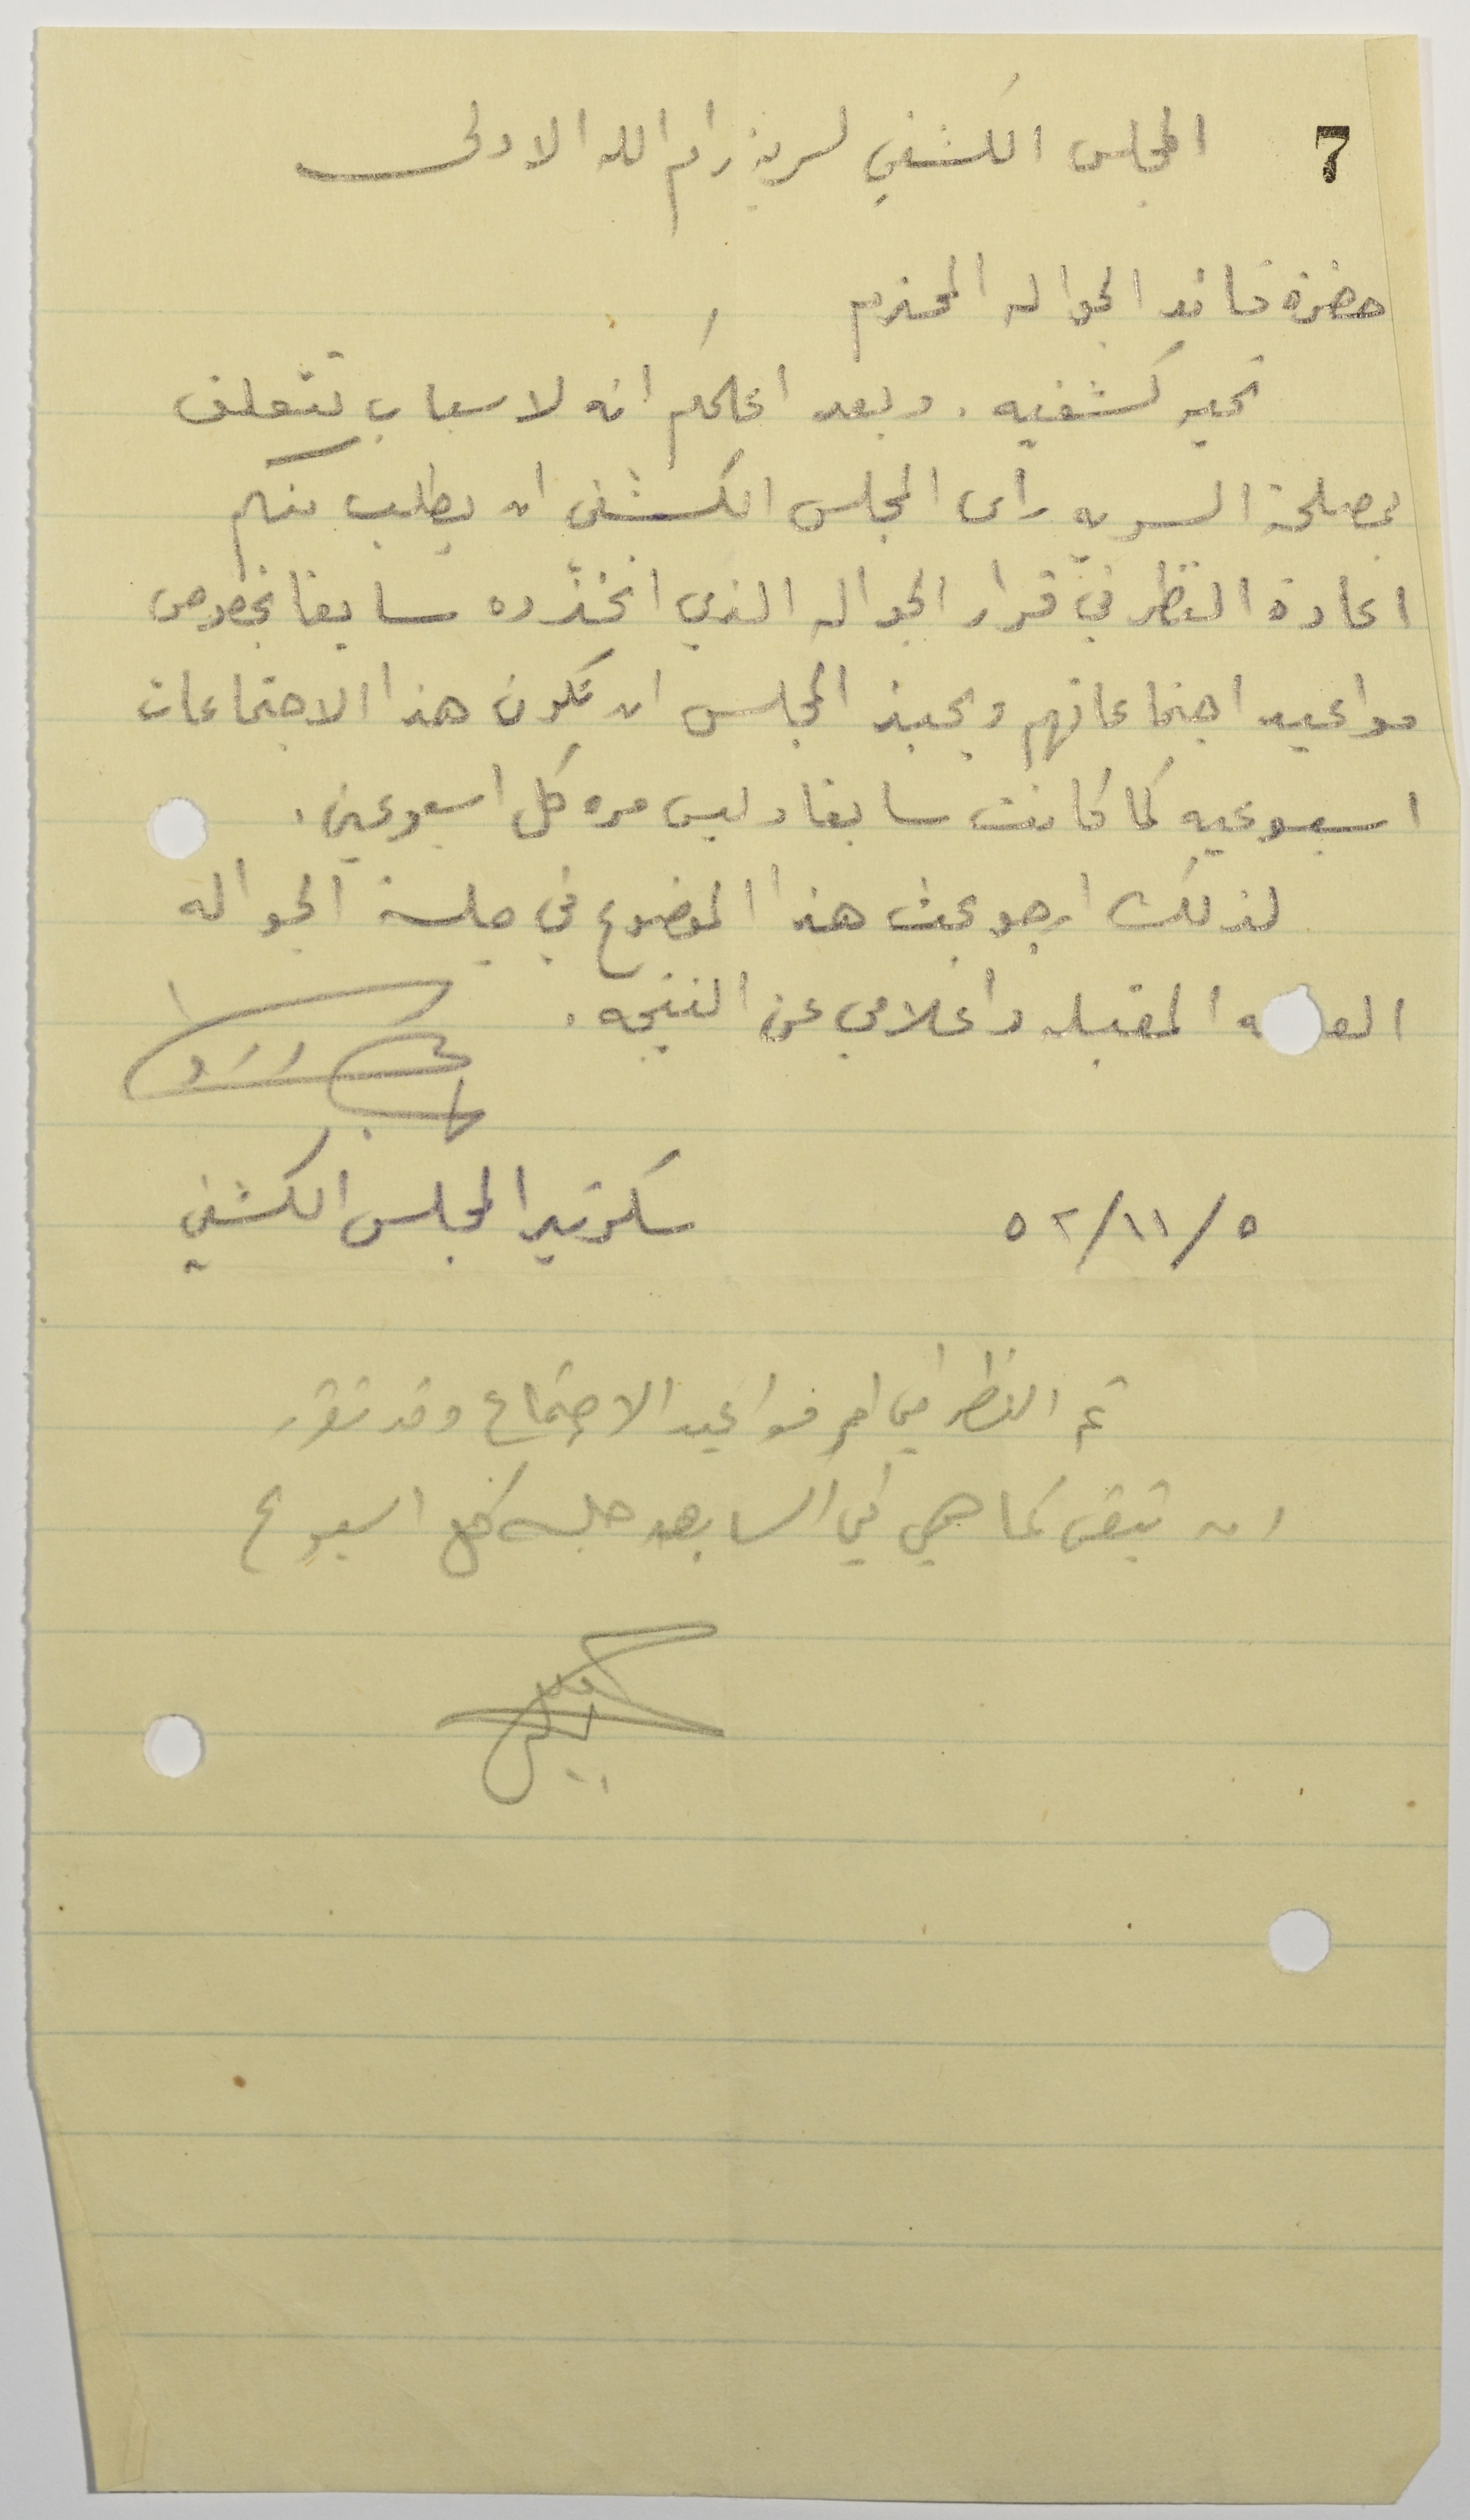 7
المجلس الكشفي لسرية رام الله الاولى
حضرة قائد الجواله المحترم
تحيه كشفيه . وبعد اعلمكم انه لاسباب تتعلق
بمصلحة السريه رأى المجلس الكشفي ان يطلب منكم
اعادة النظر في قرار الجواله الذي اتخذوه سابقا بخصوص
مواعيد اجتماعاتهم ويحبذ المجلس ان تكون هذا الاجتماعات
اسبوعيه كما كانت سابقا وليس مره كل اسبوعين .
لذلك ارجو بحث هذا الموضوع في جلسة الجواله
المقبله واعلامي عن النتيجه .
سكرتير المجلس الكشفي
٥/١١/٥٢
تم النظر في امر مواعيد الاجتماع وقد تقرر
ان تبقى كما هي في السابق جلسه كل اسبوع